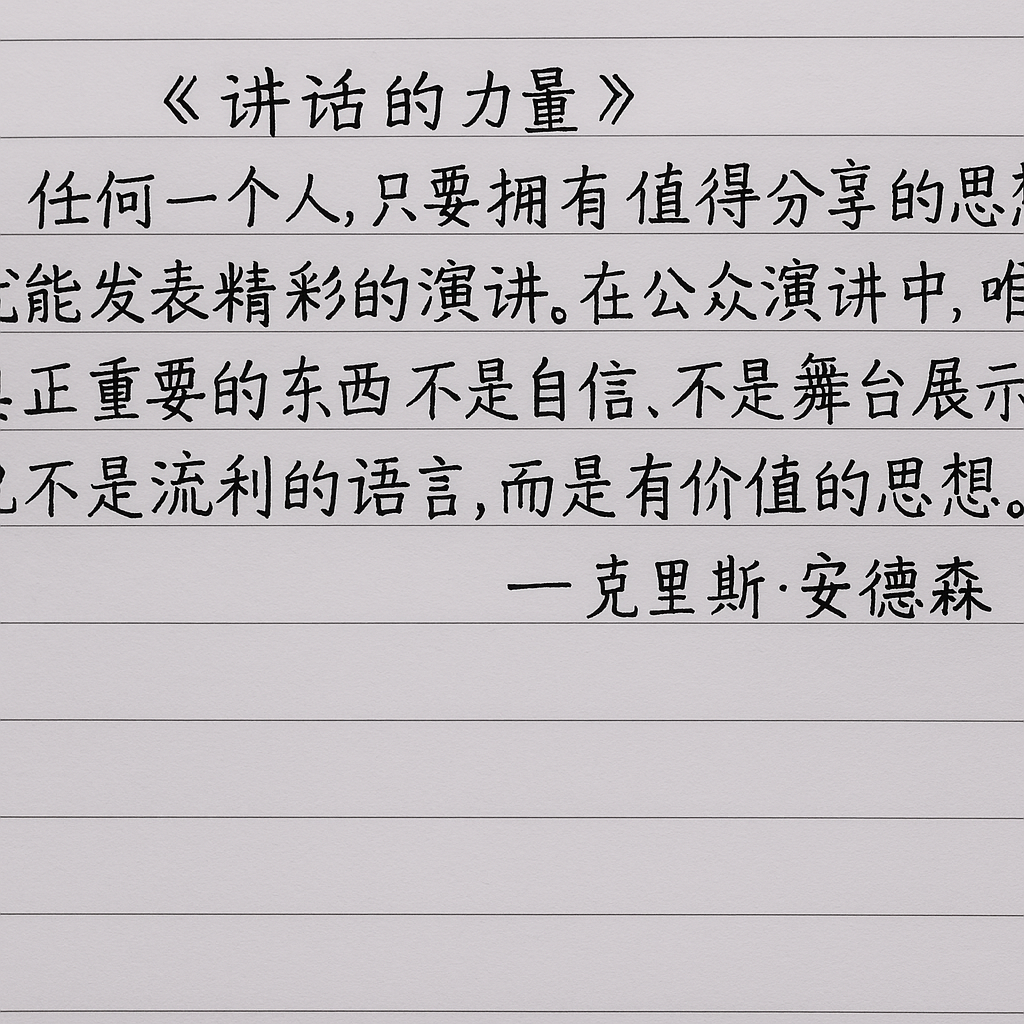 《讲话的力量》
任何一个人,只要拥有值得分享的思想
就能发表精彩的演讲。在公众演讲中,唯
真正重要的东西不是自信、不是舞台展示
也不是流利的语言,而是有价值的思想。
—克里斯·安德森